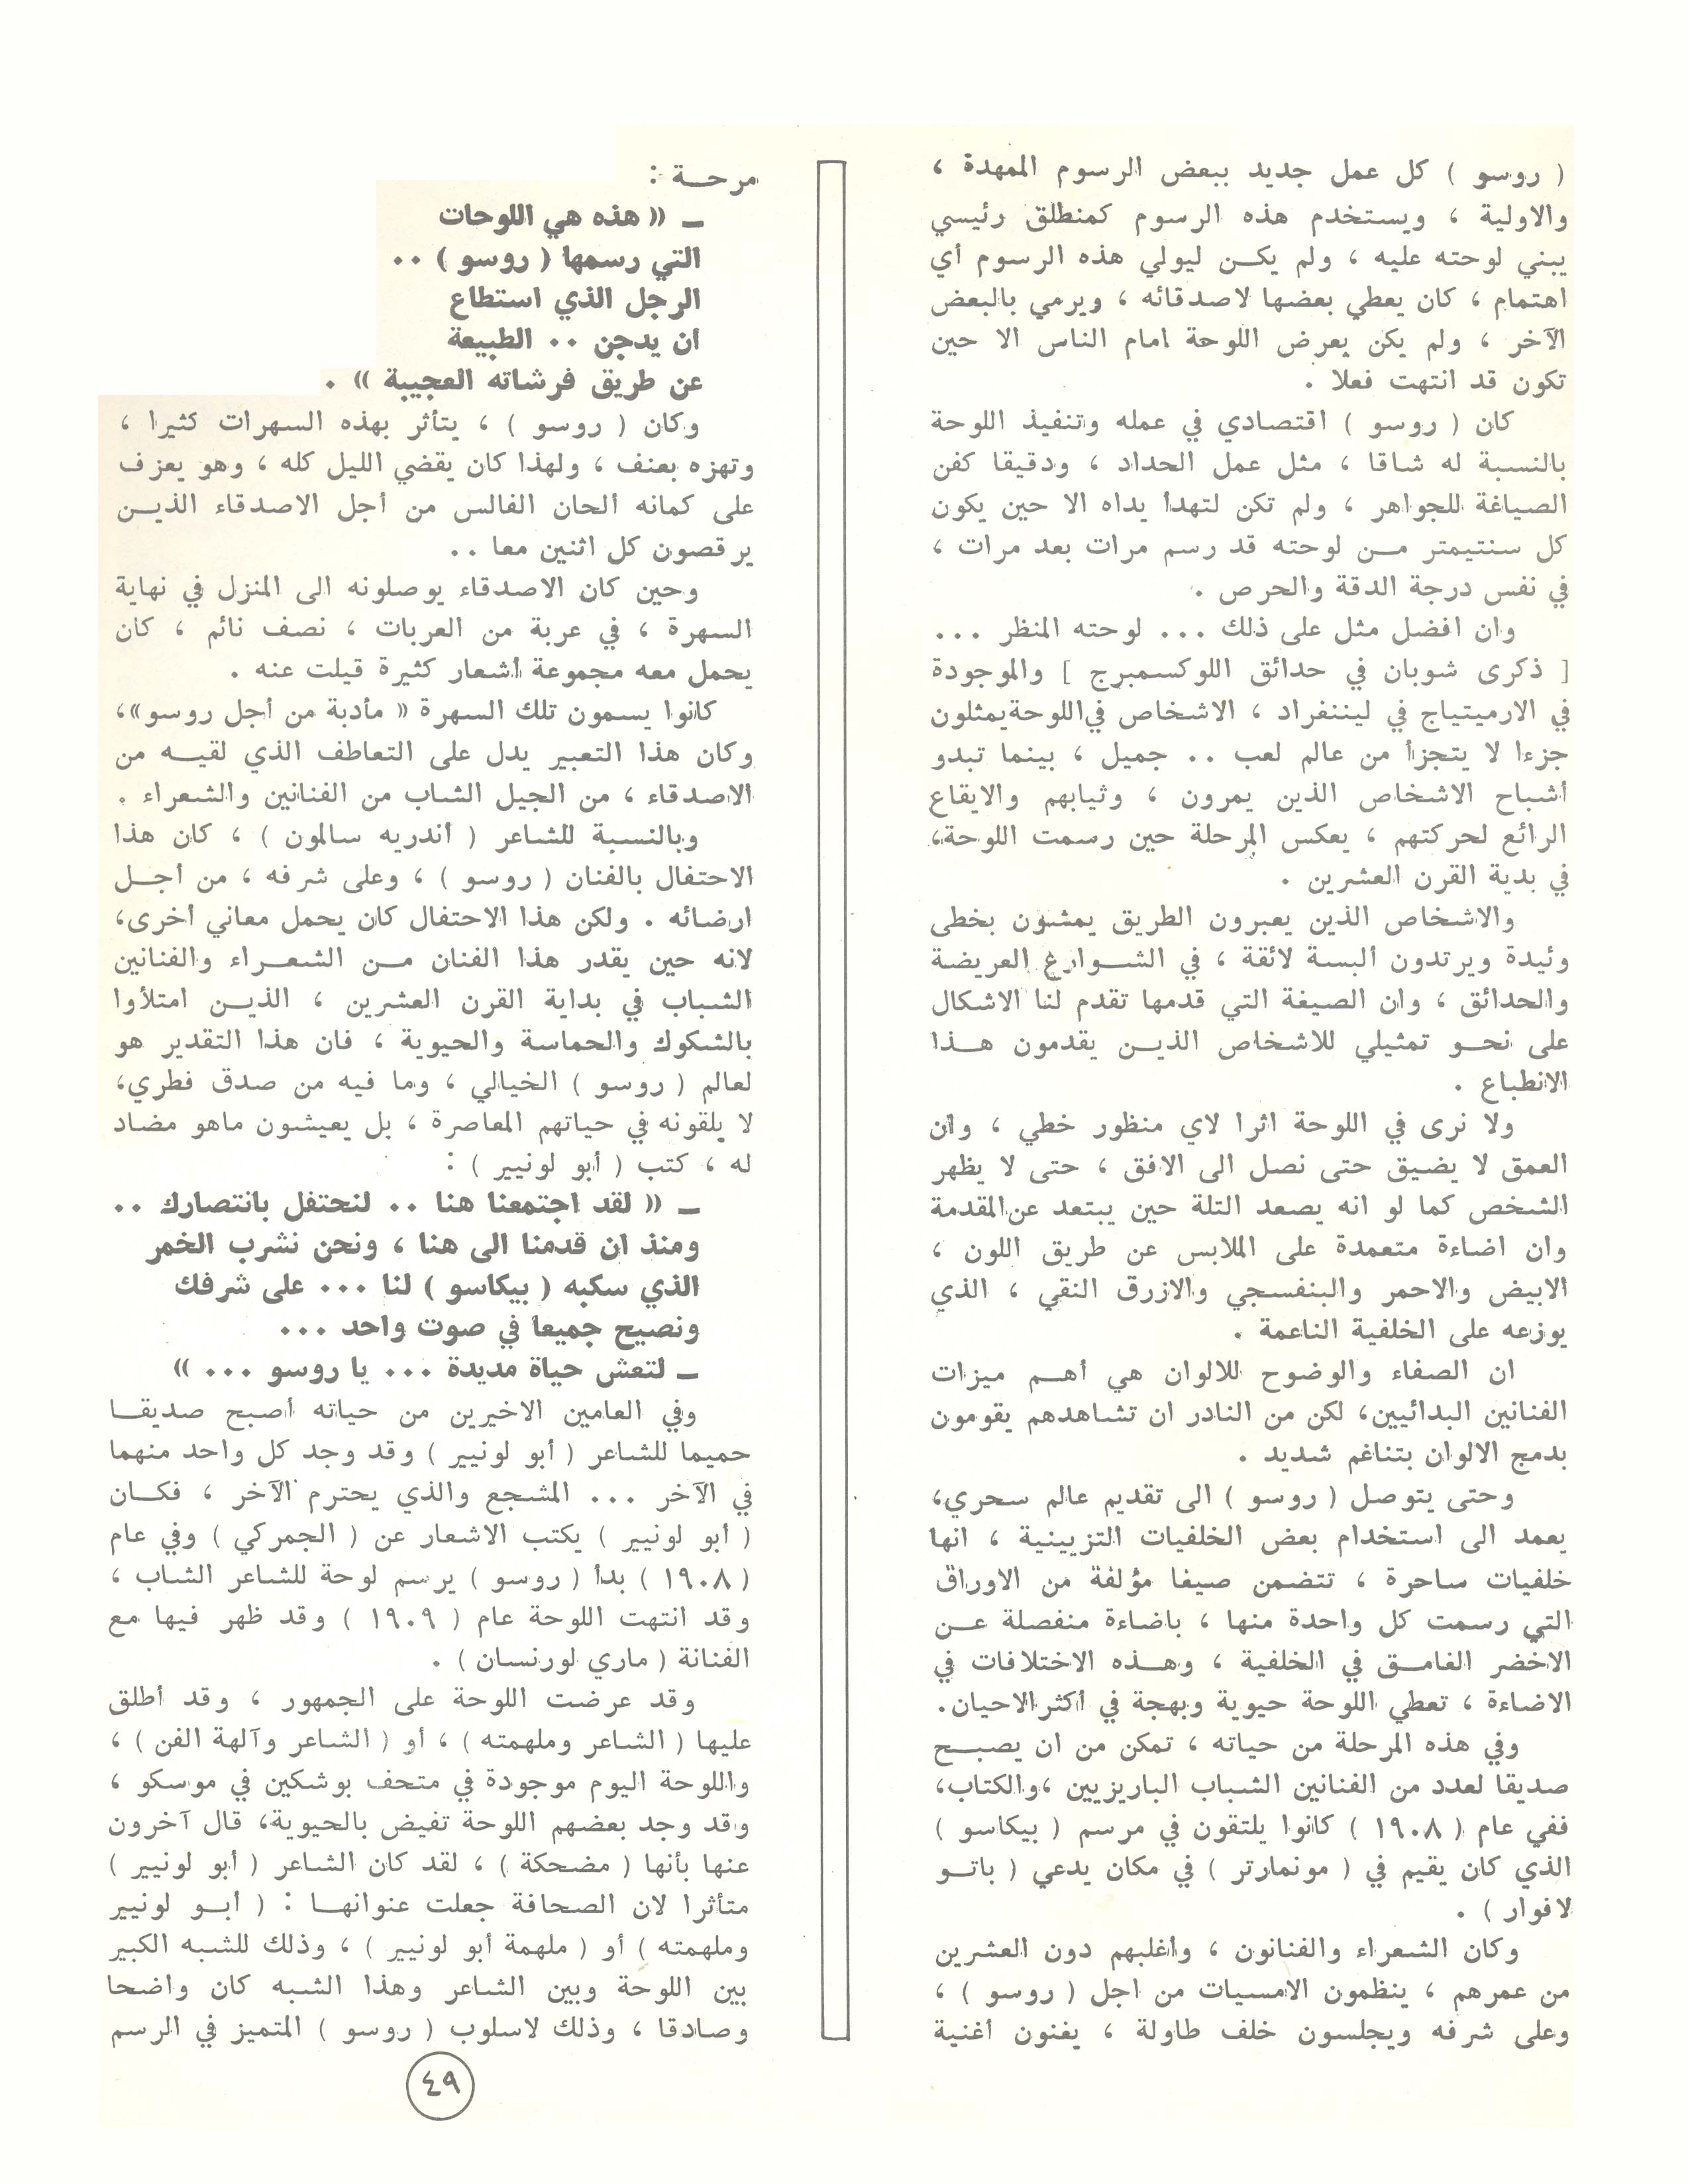 ( روسو ) كل عمل جديد ببعض الرسوم الممهدة ،
والاولية ، ويستخدم هذه الرسوم كمنطلق رئيسي
يبني لوحته عليه ، ولم يكن ليولي هذه الرسوم أي
اهتمام ، كان يعطي بعضها لاصدقائه ، ويرمي بالبعض
الآخر ، ولم يكن يعرض اللوحة امام الناس الا حين
تكون قد انتهت فعلا .
كان ( روسو ) اقتصادي في عمله وتنفيذ اللوحة
بالنسبة له شاقا ، مثل عمل الحداد ، ودقيقا كفن
الصياغة للجواهر ، ولم تكن لتهدأ يداه الا حين يكون
كل سنتيمتر من لوحته قد رسم مرات بعد مرات ،
في نفس درجة الدقة والحرص .
وان افضل مثل على ذلك ... لوحته المنظر ...
[ ذكرى شوبان في حدائق اللوكسمبرج ] والموجودة
في الارميتياج في ليننفراد ، الاشخاص في اللوحة يمثلون
جزءا لا يتجزأ من عالم لعب .. جميل ، بينما تبدو
أشباح الاشخاص الذين يمرون ، وثيابهم والايقاع
الرائع لحركتهم ، يعكس المرحلة حين رسمت اللوحة،
في بدية القرن العشرين .
والاشخاص الذين يعبرون الطريق يمشون بخطى
وئيدة ويرتدون ألبسة لائقة ، في الشوارع العريضة
والحدائق ، وان الصيغة التي قدمها تقدم لنا الاشكال
على نحو تمثيلي للاشخاص الذين يقدمون هذا
الانطباع .
ولا نرى في اللوحة اثرا لاي منظور خطي ، وان
العمق لا يضيق حتى نصل الى الافق ، حتى لا يظهر
الشخص كما لو انه يصعد التلة حين يبتعد عن المقدمة
وان اضاءة متعمدة على الملابس عن طريق اللون ،
الابيض والاحمر والبنفسجي والازرق النقي ، الذي
يوزعه على الخلفية الناعمة .
ان الصفاء والوضوح للالوان هي أهم ميزات
الفنانين البدائيين، لكن من النادر ان تشاهدهم يقومون
بدمج الالوان بتناغم شديد .
وحتى يتوصل ( روسو ) الى تقديم عالم سحري،
يعمد الى استخدام بعض الخلفيات التزيينية ، انها
خلفيات ساحرة ، تتضمن صيغا مؤلفة من الاوراق
التي رسمت كل واحدة منها ، باضاءة منفصلة عن
الاخضر الغامق في الخلفية ، وهذه الاختلافات في
الاضاءة ، تعطي اللوحة حيوية وبهجة في أكثر الاحيان.
وفي هذه المرحلة من حياته ، تمكن من ان يصبح
صديقا لعدد من الفنانين الشباب الباريزيين ،والكتاب،
ففي عام ( ١٩٠٨ ) كانوا يلتقون في مرسم ( بيكاسو )
الذي كان يقيم في ( مونمارتر ) في مكان يدعي ( باتو
لافوار ) .
وكان الشعراء والفنانون ، وأغلبهم دون العشرين
من عمرهم ، ينظمون الامسيات من اجل ( روسو ) ،
وعلى شرفه ويجلسون خلف طاولة ، يغنون أغنية
مرحة :
ــ « هذه هي اللوحات
التي رسمها ( روسو ) ..
الرجل الذي استطاع
ان يدجن .. الطبيعة
عن طريق فرشاته العجيبة » .
وكان ( روسو ) ، يتأثر بهذه السهرات كثيرا ،
وتهزه بعنف ، ولهذا كان يقضي الليل كله ، وهو يعزف
على كمانه الحان الفالس من أجل الاصدقاء الذين
يرقصون كل اثنين معا ..
وحين كان الاصدقاء يوصلونه الى المنزل في نهاية
السهرة ، في عربة من العربات ، نصف نائم ، كان
يحمل معه مجموعة أشعار كثيرة قيلت عنه .
كانوا يسمون تلك السهرة « مأدبة من أجل روسو»،
وكان هذا التعبير يدل على التعاطف الذي لقيه من
الاصدقاء ، من الجيل الشاب من الفنانين والشعراء .
وبالنسبة للشاعر ( أندريه سالمون ) ، كان هذا
الاحتفال بالفنان ( روسو ) ، وعلى شرفه ، من أجل
ارضائه . ولكن هذا الاحتفال كان يحمل معاني أخرى،
لانه حين يقدر هذا الفنان من الشعراء والفنانين
الشباب في بداية القرن العشرين ، الذين امتلأوا
بالشكوك والحماسة والحيوية ، فان هذا التقدير هو
لعالم ( روسو ) الخيالي ، وما فيه من صدق فطري،
لا يلقونه في حياتهم المعاصرة ، بل يعيشون ماهو مضاد
له ، كتب ( أبو لونيير ) :
ــ « لقد اجتمعنا هنا .. لنحتفل بانتصارك ..
ومنذ ان قدمنا الى هنا ، ونحن نشرب الخمر
الذي سكبه ( بيكاسو ) لنا ... على شرفك
ونصيح جميعا في صوت واحد ...
ــ لتعش حياة مديدة ... يا روسو ... »
وفي العامين الاخيرين من حياته أصبح صديقا
حميما للشاعر ( أبو لونيير ) وقد وجد كل واحد منهما
في الآخر ... المشجع والذي يحترم الآخر ، فكان
( أبو لونيير ) يكتب الاشعار عن ( الجمركي ) وفي عام
( ١٩٠٨ ) بدأ ( روسو ) يرسم لوحة للشاعر الشاب ،
وقد انتهت اللوحة عام ( ١٩٠٩ ) وقد ظهر فيها مع
الفنانة ( ماري لورنسان ) .
وقد عرضت اللوحة على الجمهور ، وقد أطلق
عليها ( الشاعر وملهمته ) ، أو ( الشاعر وآلهة الفن ) ،
واللوحة اليوم موجودة في متحف بوشكين في موسكو ،
وقد وجد بعضهم اللوحة تفيض بالحيوية، قال آخرون
عنها بأنها ( مضحكة ) ، لقد كان الشاعر ( أبو لونيير )
متأثرا لان الصحافة جعلت عنوانها : ( أبو لونيير
وملهمته ) أو ( ملهمة أبو لونيير ) ، وذلك للشبه الكبير
بين اللوحة وبين الشاعر وهذا الشبه كان واضحا
وصادقا ، وذلك لاسلوب ( روسو ) المتميز في الرسم
٤٩